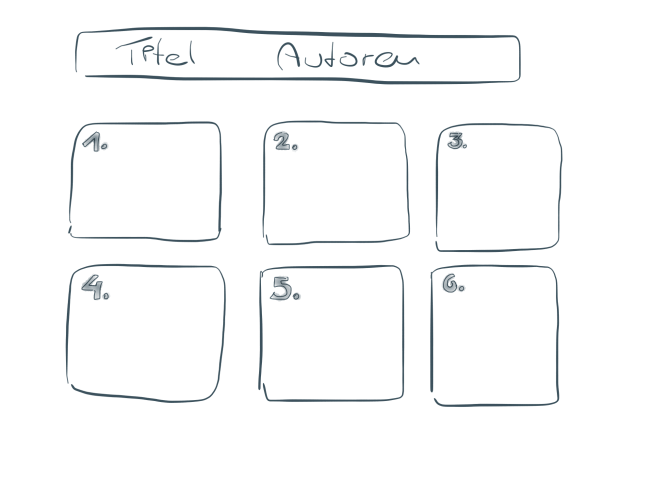 Titel Autoren
1. 2. 3.
4. 5. 6.